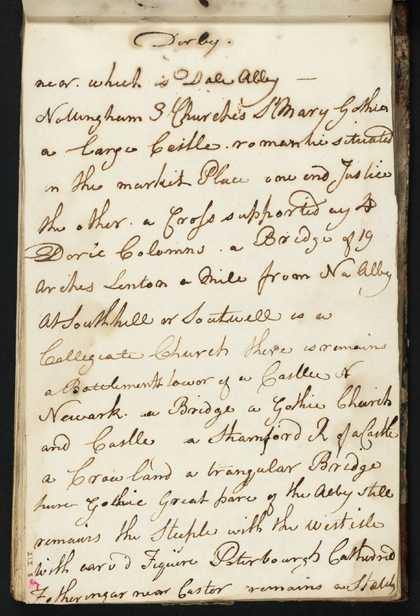 Derby.
near. which is Dale Abby —
Nottingham 3 Churches St Mary Gothic
a large Castle. romantic situated
in the market Place one end Justice
the other. a Cross supported by 4
Doric Columns. a Bridge of 19
arches Lenton a Mile from Na Abby
At Southhill or Soutwell is a
Collegiate Church there is remains
a Battlements tower of a Castle N
Newark. a Bridge a Gothic Church
and Castle a Stamford R of a Castle
a Crowland a trangular Bridge
here Gothic Great part of the Abby still
remains the Steeple with the West isle
with carv'd Figure Peterbourgh Cathedrel
Fotheringar near Castor remains a